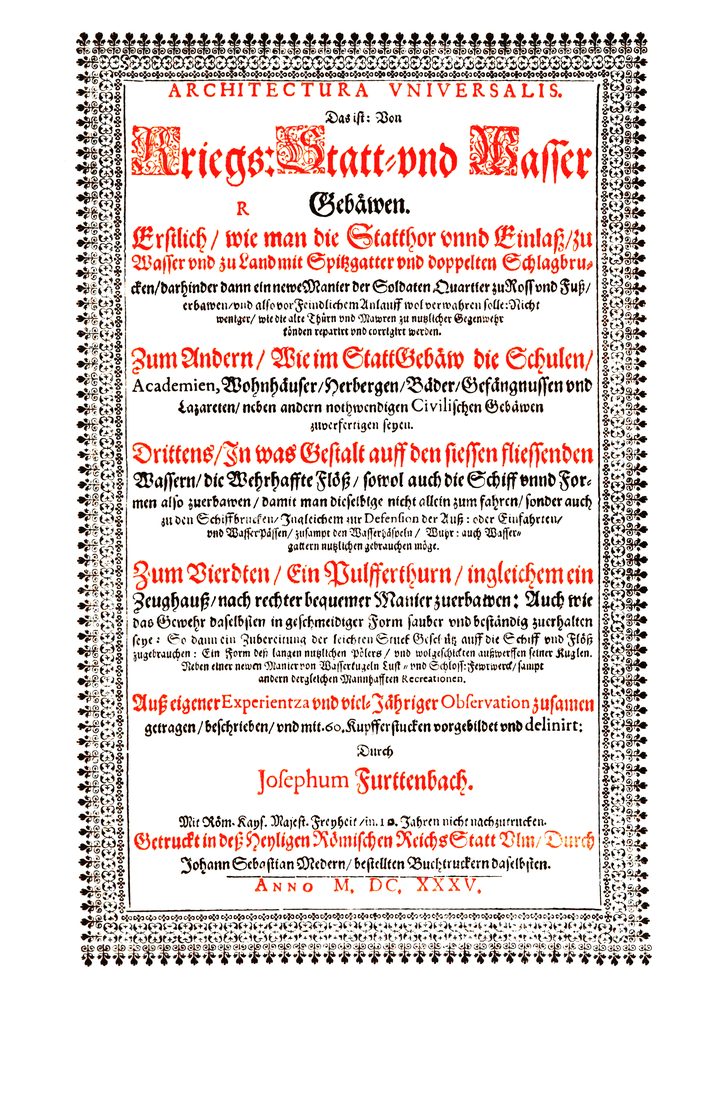 ARCHITECTURA VNIVERSALIS.
Das ist: Von
Kriegs: Statt-vnd Wasser
R Gebäwen.
Erstlich / wie man die Statthor vnnd Einlaß/zu
Wasser vnd zu Land mit Spitzgatter vnd doppelten Schlagbru-
cken/darhinder dann ein newe Manier der Soldaten Quartier zu Ross vnd Fuß/
erbawen/vnd also vor Feindlichem Anlauff wol verwahren solle: Nicht
weniger/ wie die alte Thürn vnd Mawren zu nutzlicher Gegenwehr
könden repariert vnd corrigirt werden.
Zum Andern / Wie im StattGebäw die Schulen/
Academien, Wohnhäuser/Herbergen/Bäder/Gefängnussen vnd
Lazareten/ neben andern nothwendigen Civilischen Gebäwen
zuverfertigen seyen.
Drittens/In was Gestalt auff den siessen fliessenden
Wassern/die Wehrhaffte Flöß/ sowol auch die Schiff vnnd For-
men also zuerbawen / damit man dieselbige nicht allein zum fahren/ sonder auch
zu den Schiffbrucken/ Ingleichem zur Defension der Auß: oder Einfahrten/
vnd WasserPässen/ zusampt den Wasserhäspeln / Wuhr: auch Wasser-
gattern nutzlichen gebrauchen möge.
Zum Vierdten / Ein Pulfferthurn / ingleichem ein
Zeughauß/nach rechter bequemer Manier zuerbawen: Auch wie
das Gewehr daselbsten in geschmeidiger Form sauber vnd beständig zuerhalten
seye: So dann ein Zubereitung der leichten Stuck Geschütz auff die Schiff vnd Flöß
zugebrauchen: Ein Form deß langen nutzlichen Pölers / vnd wolgeschickten außwerffen seiner Kuglen.
Neben einer newen Manier von Wasserkugeln Lust- vnd Schloss: Fewrwerck/ sampt
andern dergleichen Mannhafften Recreationen.
Auß eigener Experientza vnd viel-Jähriger Observation zusamen
getragen/beschrieben/vnd mit .60. Kupfferstucken vorgebildet vnd delinirt:
Durch
Josephum Furttenbach.
Mit Röm. Kays. Majest. Freyheit/in .10. Jahren nicht nachzutrucken.
Getruckt in deß Heyligen Römischen Reichs Statt Vlm/ Durch
Johann Sebastian Medern/ bestellten Buchtruckern daselbsten.
ANNO M. DC. XXXV.